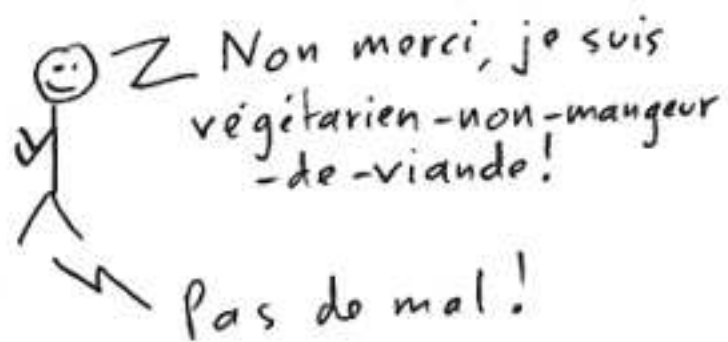 Non merci, je suis
végétarien-non-mangeur
-de-viande!
Pas de mal!